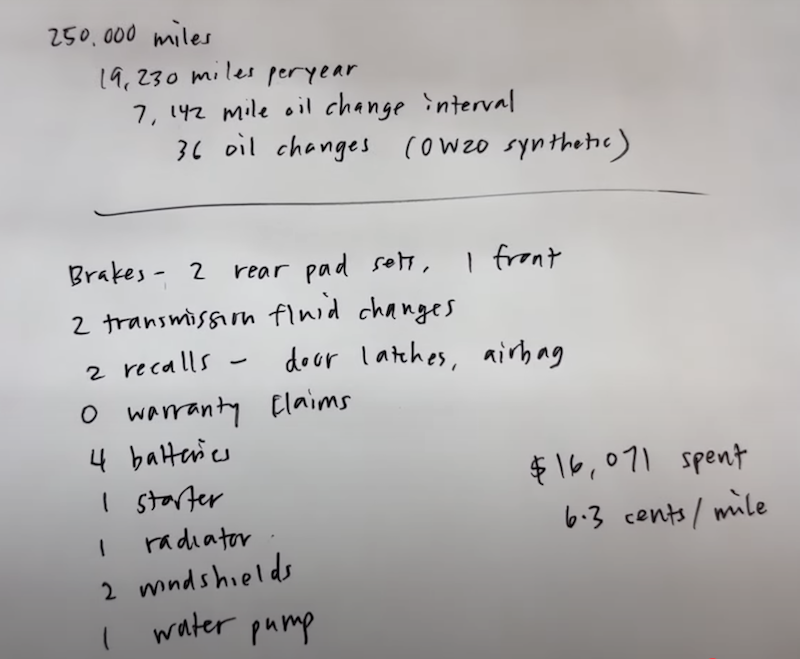 250,000 miles
19,230 miles per year
7,142 mile oil change interval
36 oil changes (0W20 synthetic)
Brakes - 2 rear pad sets, 1 front
2 transmission fluid changes
2 recalls - door latches, airbag
0 warranty claims
4 batteries
1 starter
1 radiator
2 windshields
1 water pump
$16,071 spent
6.3 cents/mile